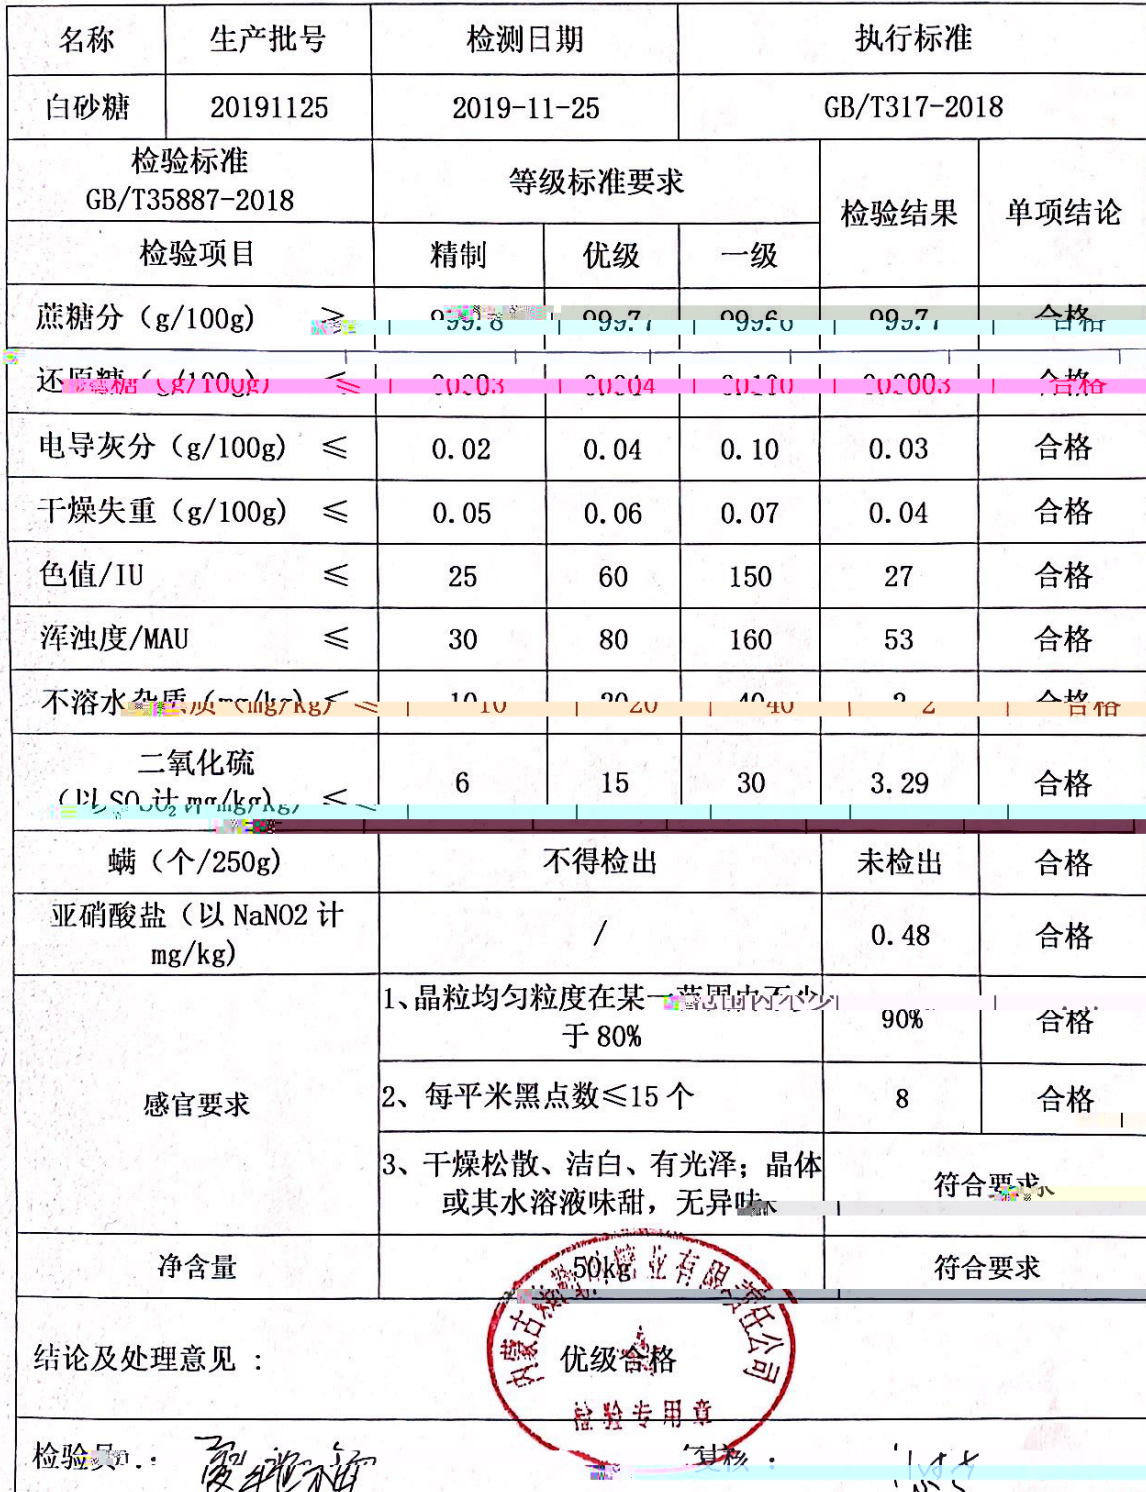 名称 生产批号 检测日期 执行标准
白砂糖 20191125 2019-11-25 GB/T317-2018
检验标准
GB/T35887-2018
等级标准要求 检验结果 单项结论
检验项目 精制 优级 一级
蔗糖分（g/100g） ≥ 99.8 99.7 99.6 99.7 合格
还原糖（g/100g） ≤ 合格
电导灰分（g/100g） ≤ 0.02 0.04 0.10 0.03 合格
干燥失重（g/100g） ≤ 0.05 0.06 0.07 0.04 合格
色值/IU ≤ 25 60 150 27 合格
浑浊度/MAU ≤ 30 80 160 53 合格
不溶水杂质（mg/kg） ≤ 10 20 40 2 合格
二氧化硫
（以SO₂计mg/kg） ≤ 6 15 30 3.29 合格
螨（个/250g) 不得检出 未检出 合格
亚硝酸盐（以 NaNO2 计
mg/kg) / 0.48 合格
感官要求
1、晶粒均匀粒度在某一范围内不少
于 80% 90% 合格
2、每平米黑点数≤15 个 8 合格
3、干燥松散、洁白、有光泽；晶体
或其水溶液味甜，无异味 符合要求
净含量 50kg 符合要求
结论及处理意见： 优级合格
内蒙古 糖业有限责任公司
检验专用章
检验员： 复核：